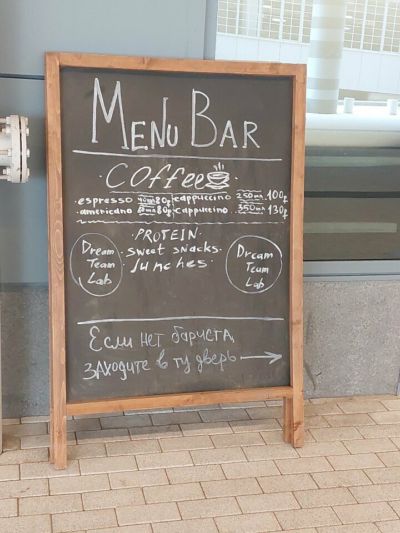 MENU BAR
Coffee
espresso 40мл 80g cappuccino 250мл 100g
americano 80g cappuccino 350мл 130g
PROTEIN
sweet snacks
lunches
Dream
Team
Lab
Dream
Team
Lab
Если нет бариста,
заходите в ту дверь →